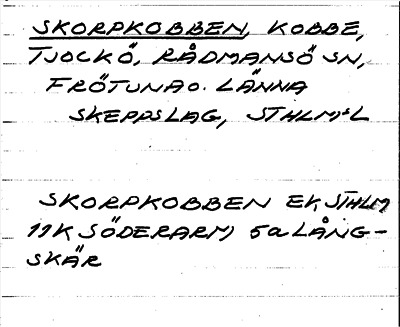 SKORPKOBBEN, KOBBE,
TJOCKÖ, RÅDMANSÖ SN,
FRÖTUNA O. LÄNNA
SKEPPSLAG, STHLMS L
SKORPKOBBEN EK, STHLM
11K SÖDERARM, 5a LÅNG-
SKÄR